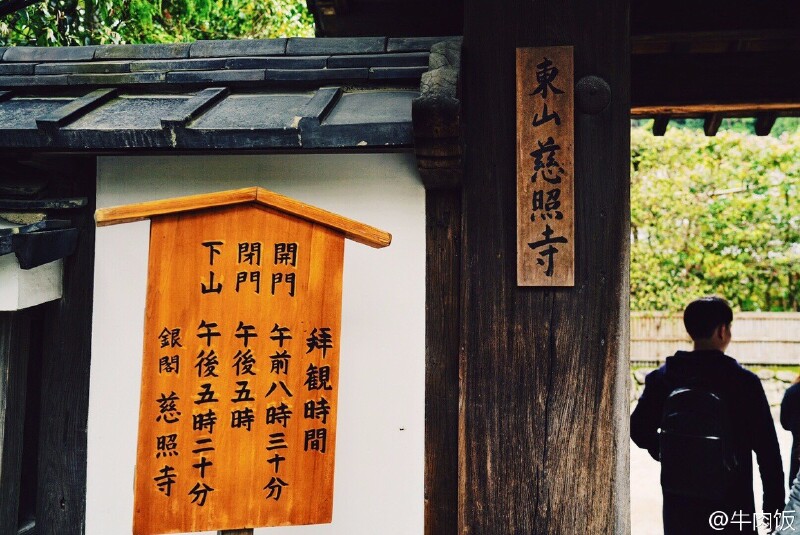 拜観時間
開門 午前八時三十分
閉門 午後五時
下山 午後五時二十分
銀閣 慈照寺
東山慈照寺
@牛肉饭